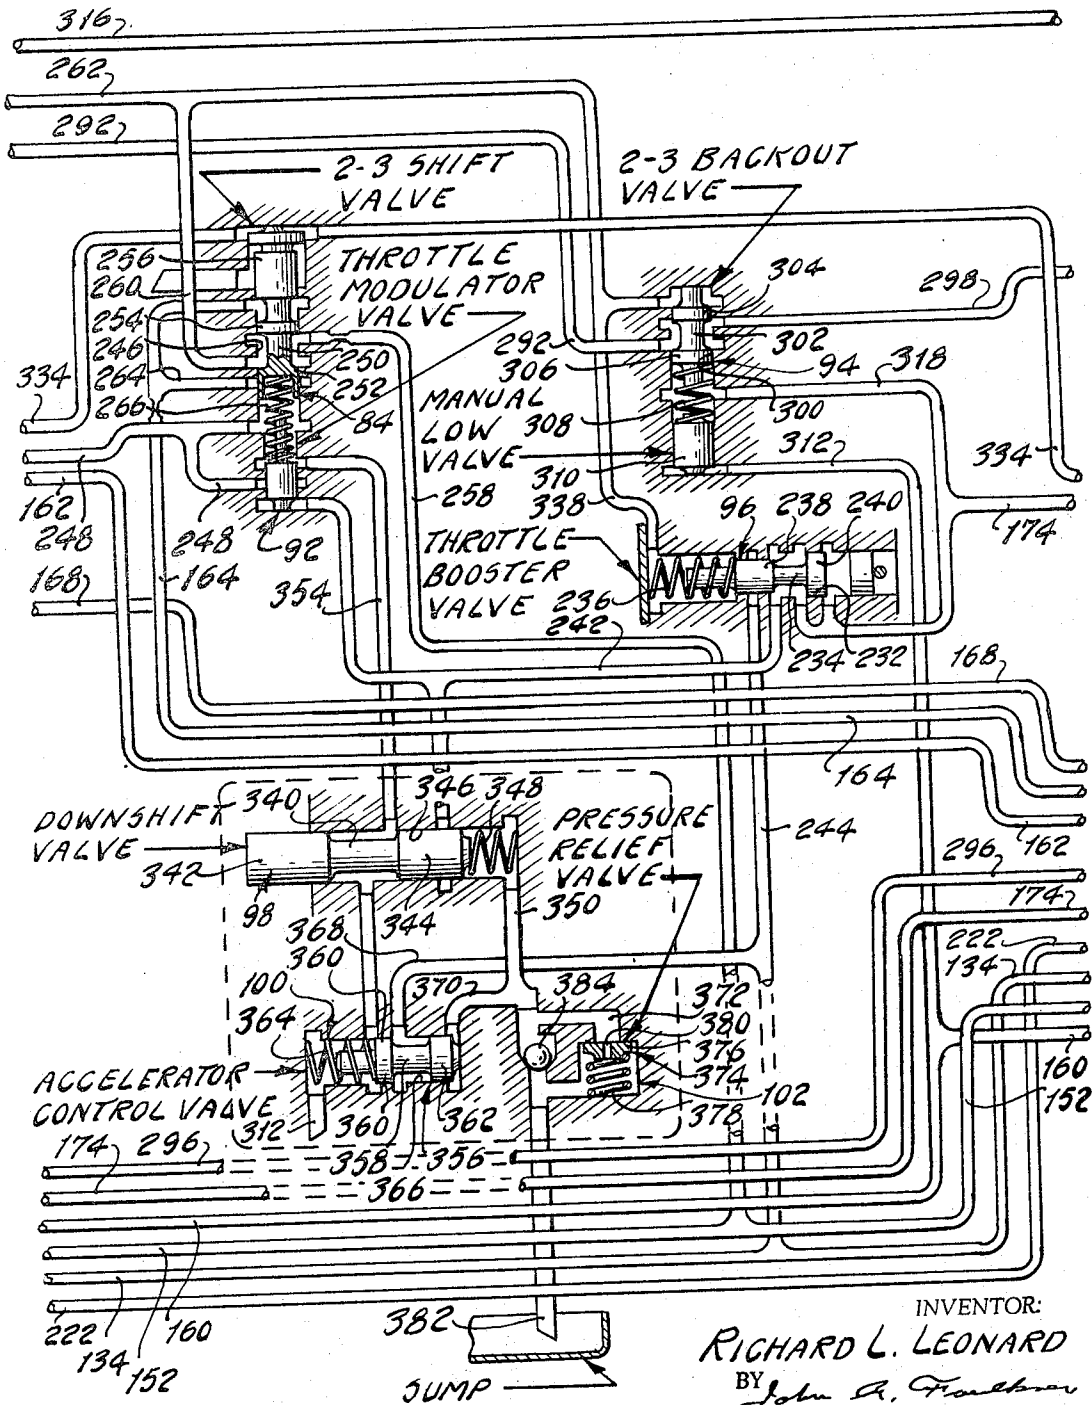 316
262
292
2-3 SHIFT
VALVE
2-3 BACKOUT
VALVE
256
260
254
246
264
266
334
THROTTLE
MODULATOR
VALVE
250
252
84
304
298
302
292
306
94
318
300
MANUAL
LOW
VALVE
308
310
312
338
334
162
248
248
92
258
174
168
164
354
THROTTLE
BOOSTER
VALVE
96
238
240
236
242
234
232
168
164
162
DOWNSHIFT
VALVE
340
346
348
342
98
344
350
PRESSURE
RELIEF
VALVE
244
296
174
222
134
368
360
370
384
372
380
376
374
102
378
100
364
ACCELERATOR
CONTROL VALVE
312
360
362
358
356
366
160
152
174
296
222
134
152
160
382
SUMP
INVENTOR:
RICHARD L. LEONARD
BY John A. Faulkner